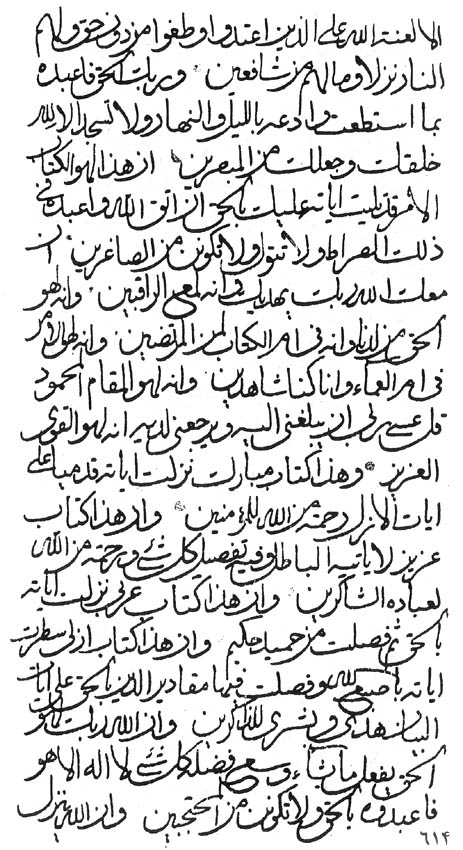 الا لعنة الله على الذین اعتدوا وطغوا من دونی حق ولهم
النار نزلا وما لهم من شافعین وربك الحق فاعبده
بما استطعت وادعه باللیل والنهار ولا تسجد الا لله
خلقك وجعلك من المبصرین ان هذا لهو الكتاب
الامر قد تلیت ایاته علیك بالحق ان اتق الله واعبده فی
ذلك الصراط ولا تتول ولا تكونن من الصاغرین ان
معك الله ربك یهدیك وانه لمع الراقبین وانه لهو
الحق من لدنا وانه فی ام الكتاب لمن المرتضین وانه لهو الامر
فی امر العماء وانا كنا شاهدین وانه لهو المقام المحمود
قل عسی ربی ان یبلغنی الیه ویرجعنی لدیه انه لهو القوی
العزیز وهذا كتاب مبارك نزلت ایاته قدما علی
ایات الازل رحمة من الله للمؤمنین وان هذا كتاب
عزیز لا یاتیه الباطل وفیه تفصیل كل شئ ورحمة من الله
لعباده الشاكرین وان هذا كتاب عربی نزلت ایاته
بالحق ثم فصلت من حمید حكیم وان هذا كتاب ازلی سطرت
ایاته باصبع الله وفصلت فیها مقادیر الذین بالحق علی ایات
البیان هدی وبشری للذاكرین وان الله ربك لهو
الحق یفعل ما یشاء وسع فضله كل شئ لا اله الا هو
فاعبدوه بالحق ولا تكونن من المحتجبین وان الله ینزل
٦١۴